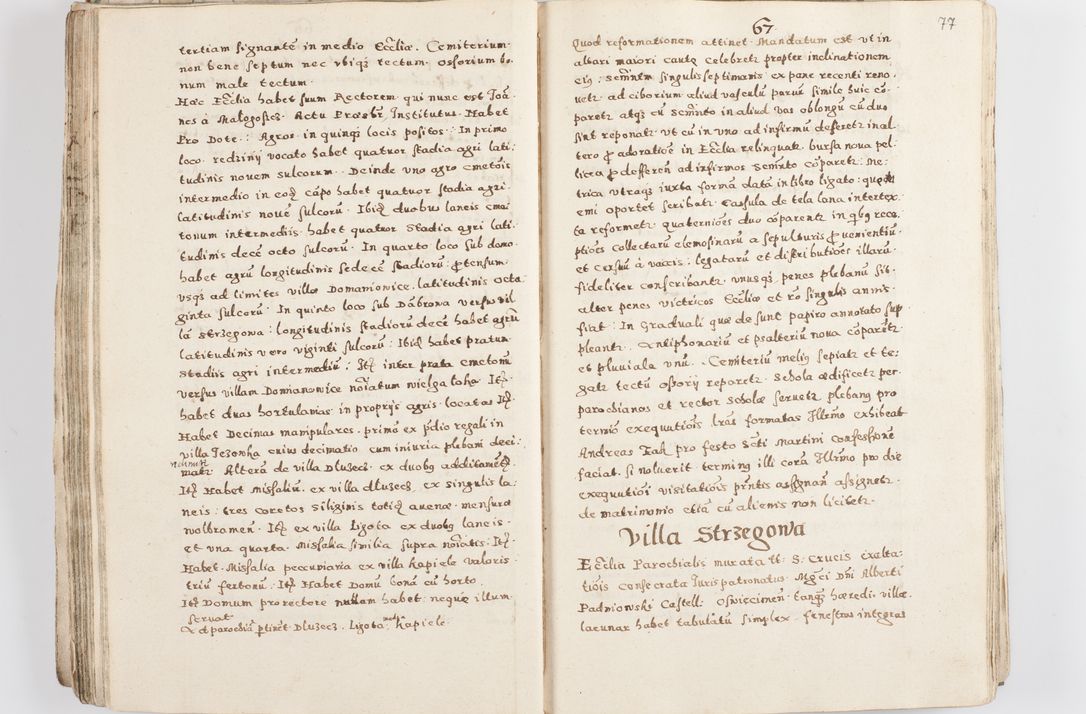 tertiam signante in medio Ecclīæ. Cemiterium
non bene septum nec vbiqȝ tectum. Ossorium bo,
num male tectum.
Hæc Ecclīa habet suum Rectorem qui nunc est Joā,
nes à Malogoscs. Actu Præsbr̄ Institutus. Habet
Pro Dote: Agros in quinqȝ locis positos: In primo
loco redziny vocato habet quatuor stadia agri lati:
tudinis nouem sulcorum. Deinde vno agro cmetōis
intermedio in eoȡ cāpo habet quatuor stadia agri
latitudinis nouē sulcorū. Ibiȡ duobus laneis cme
tonum intermediis habet quatuor stadia agri lati.
tudinis decē octo sulcorū. In quarto loco sub domo
habet agrū longitudinis sedecē stadiorū ꝓtensum
vsqȝ ad limites villæ Domaniowice latitudinis octa
ginta sulcorū. In quinto loco sub Dābrowa versus vil
lā Strzegowa: longitudinis stadiorū decē habet agrū
latitudinis vero viginti sulcorū: Ibiȡ habet pratum
stadiis agri intermediū: Itȝ inter prata cmetonū
versus villam Domianowice noīatum wielga loka Itȝ
habet duas hortulanias in proprijs agris locatas Itȝ
Habet Decimas manipulares. primo ex pdio regali in
villa Jezonka cuius decimatio cum iniuria plebani deci:
matr Alterā de villa Dluzecz ex duobȝ additamētȝ
Itȝ Habet Missaliū ex villa dluzecz ex singulis la:
neis: tres coretos siliginis totiȡ auenæ mensuræ
wolbramen. Itȝ ex villa Ligota ex duobȝ laneis
et vna quarta. Missalia similia supra noīatis: Itȝ
Habet Missalia peccuniaria ex villa Kapiele valoris
triū fertonū: Itȝ Habet Domū bonā cū horto
Itȝ Domum pro rectore nullam habet: neque illum
seruat
& et parochiā ꝑtinēt Dluzecz. Ligota Kapiele.
67
77
Quod reformationem attinet Mandatum est vt in
altari maiori caute celebretr propter inclinationem
eiȝ: semn̄tm singulis septimanis ex pane recenti reno,
uetr ad ciborium aliud vasculū paruū simile huic cō,
paretr atqȝ cū semn̄to in aliud vas oblongū cū duo
sint reponatr vt cū in vno ad infirmū defferetr in al,
tero ꝓ adoratiōe in Ecclīa relinquatr bursa noua pel,
licea ꝓ defferen̄ ad infirmos semn̄to cōparetr: Me:
trica vtraqȝ iuxta formā datā in libro ligato: quē
emi oportet scribatr Casula de tela lana intertex
ta reformetr quaterniōes duo cōparentr in qȝbȝ rece,
ptiōes collectarū elemosinarū a sepulturis ꝓuenientiū
et censuū à vaccis: legatarū et distributiōes illarū
fideliter conscribantr vnusqȝ penes plebanū sit
alter penes victricos Ecclīæ et rō singulis annis
fiat: In Graduali quæ desunt papiro annotato sup
pleantr. Antiphonariū et psalteriū noua cōparētr
et pluuiale vnū. Cemiteriū meliȝ sepiatr et te:
gatr tectū ossorij reparetr. Schola ædificetr per
parochianos et rector scholæ seruetr plebanȝ pro
termio exequutiōis lr̄as formatas Illr̄mo exhibeat
Andreas Zak pro festo Scti Martini confessionē
faciat. Si noluerit terminȝ illi corā Illr̄mo pro die
exequutiōi visitatiōis pn̄tis assignan̄ assignetr.
de matrimonio etiā cū alienis non licitetr.
Villa Strzegowa
Ecclīa Parochialis murata tt: S. Crucis exalta:
tiōis consecrata Jurispatronatus Mgcī Dn̄i Alberti
Padniowski Castell: Oswiecimen̄ tanqȝ hæredi villæ.
lacunar habet tabulatū simplex. fenestras integras